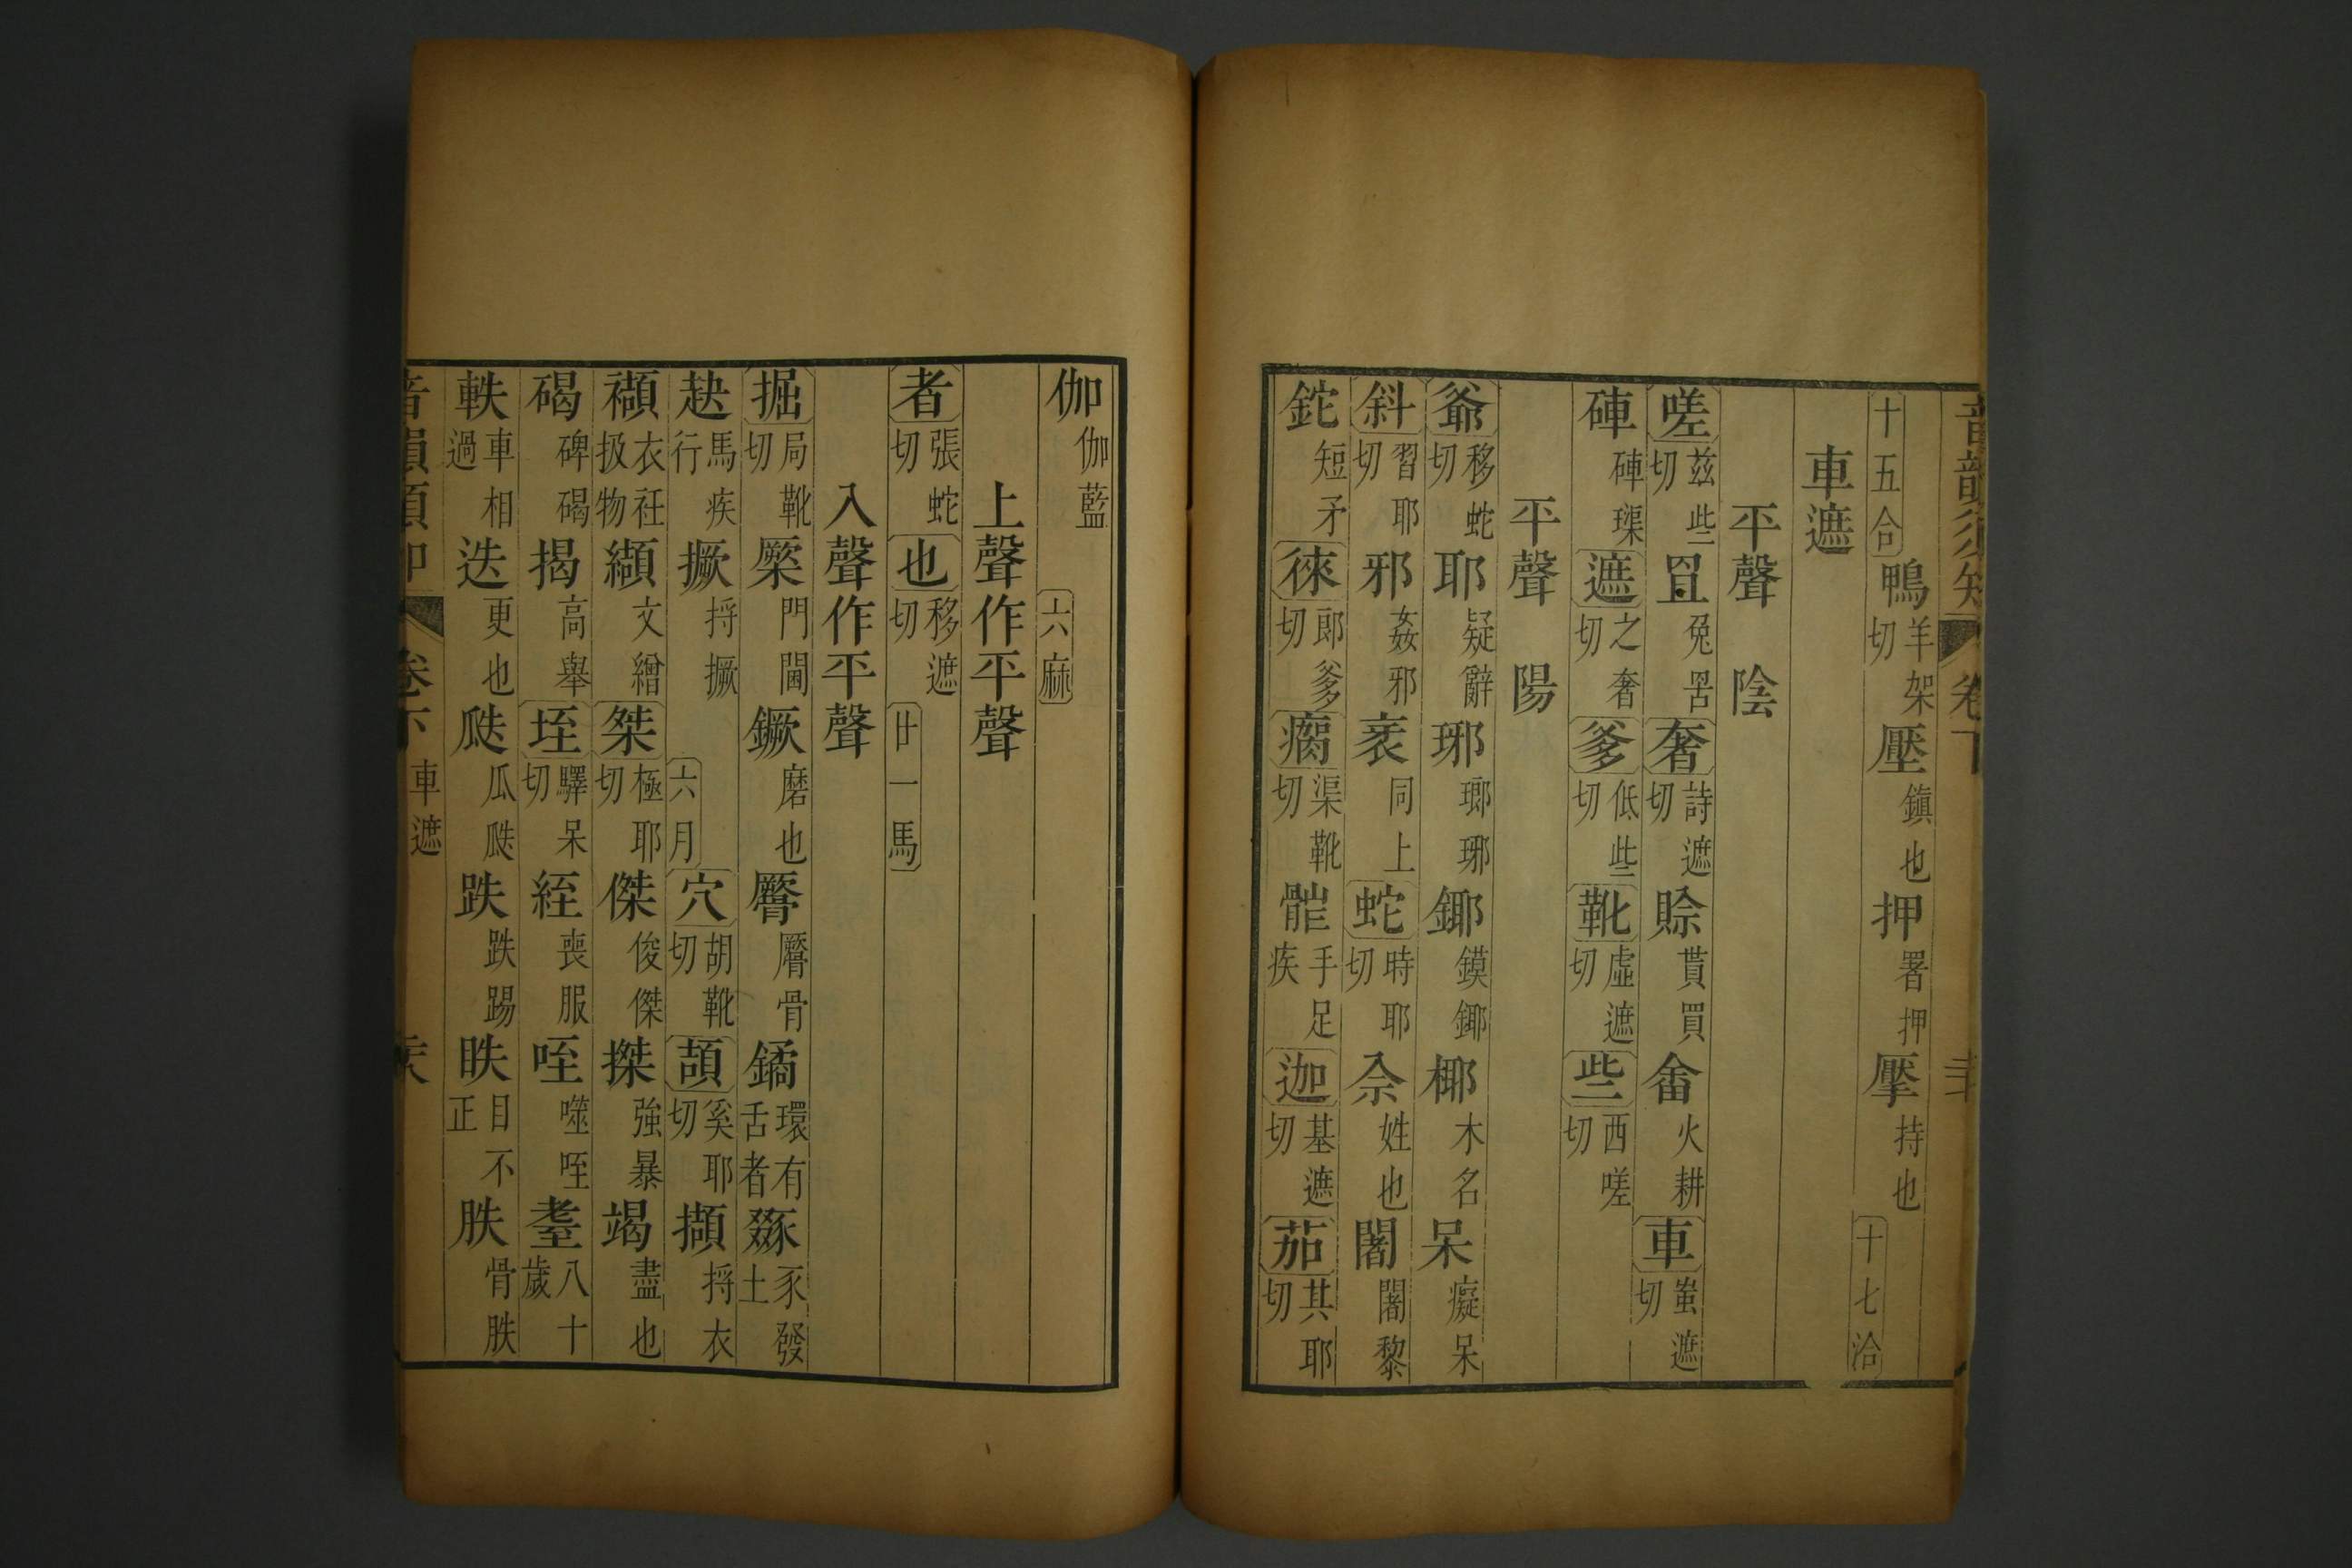 音韻須知 卷下
十五合 鴨羊架切 壓鎮也 押署押 擪持也 十七洽
車遮
平聲 陰
嗟茲些切 罝兔罟 奢詩遮切 賒貰買 畬火耕 車蚩遮切
硨硨璖 遮之奢切 爹低些切 靴虛遮切 些西嗟切
平聲 陽
爺移蛇切 耶疑辭 琊瑯琊 鎁鏌鎁 椰木名 呆癡呆
斜習耶切 邪姦邪 衺同上 蛇時耶切 佘姓也 闍闍黎
鉈短矛 徠郎爹切 瘸渠靴切 手足疾 迦基遮切 茄其耶切
伽伽藍 六麻
上聲作平聲
者張蛇切 也移遮切 廿一馬
入聲作平聲
掘局靴切 橜門闑 鐝磨也 臀骨 鐍環有舌者 豕發土
趹馬疾行 撅捋撅 六月 穴胡靴切 頡奚耶切 擷捋衣
襭衣衽扱物 纈文繒 桀極耶切 傑俊傑 搩強暴 竭盡也
碣碑碣 揭高舉 垤驛呆切 絰喪服 咥噬咥 耋八十歲
軼車相過 迭更也 瓞瓜瓞 跌跌踢 眣目不正 胅骨胅
卷下 車遮